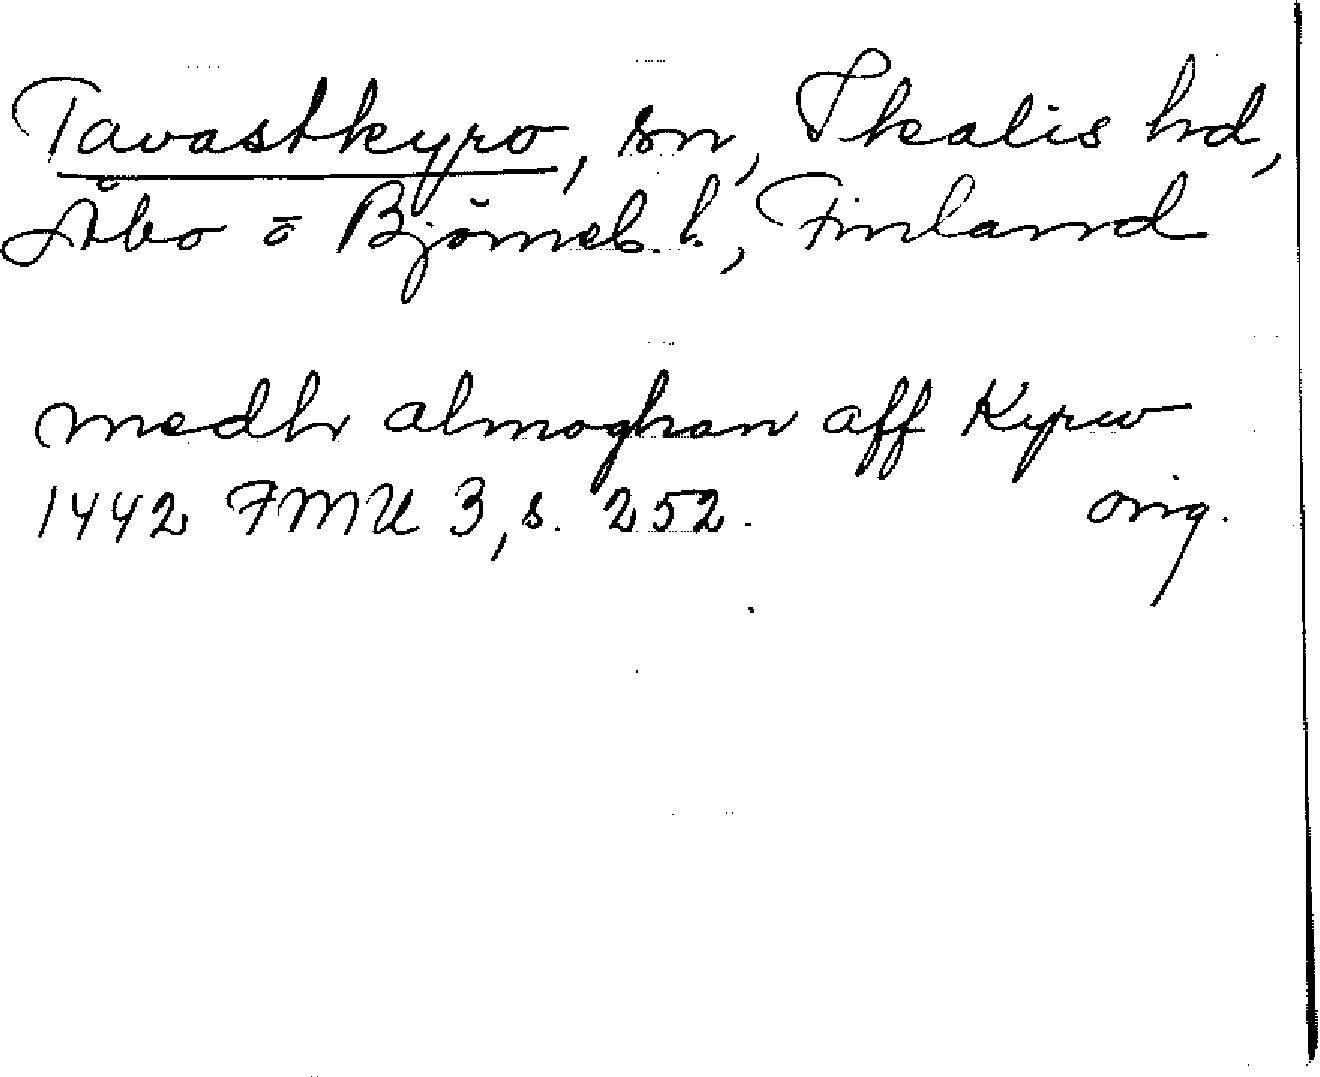 Tavastkyro, sn, Ikalis hd,
Åbo o Björneb. l., Finland
medh almoghan aff Kyrw
1442 FMU 3, s. 252. orig.